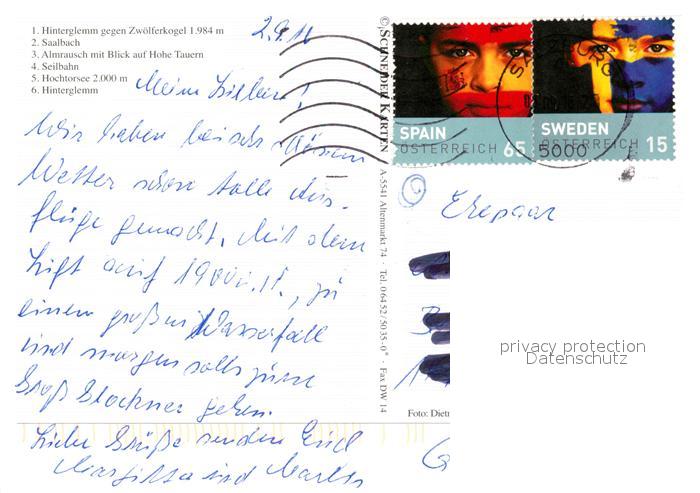 1. Hinterglemm gegen Zwölferkogel 1.984 m
2. Saalbach
3. Almrausch mit Blick auf Hohe Tauern
4. Seilbahn
5. Hochtorsee 2.000 m
6. Hinterglemm
Meine Lieben!
Wir haben bei sehr schönem
Wetter schon tolle Aus-
flüge gemacht, mit dem
Lift auf 1900 m, zu
einem großen Wasserfall
und morgen solls zum
Groß Glockner gehen.
Liebe Grüße senden Euch
und
© SCHNEIDER KARTEN
A-5541 Altenmarkt 74 · Tel. 06452/5035-0* · Fax DW 14
SPAIN
ÖSTERREICH 65
SWEDEN
ÖSTERREICH 15
5000
Ehepaar
privacy protection
Datenschutz
Foto: Dietm